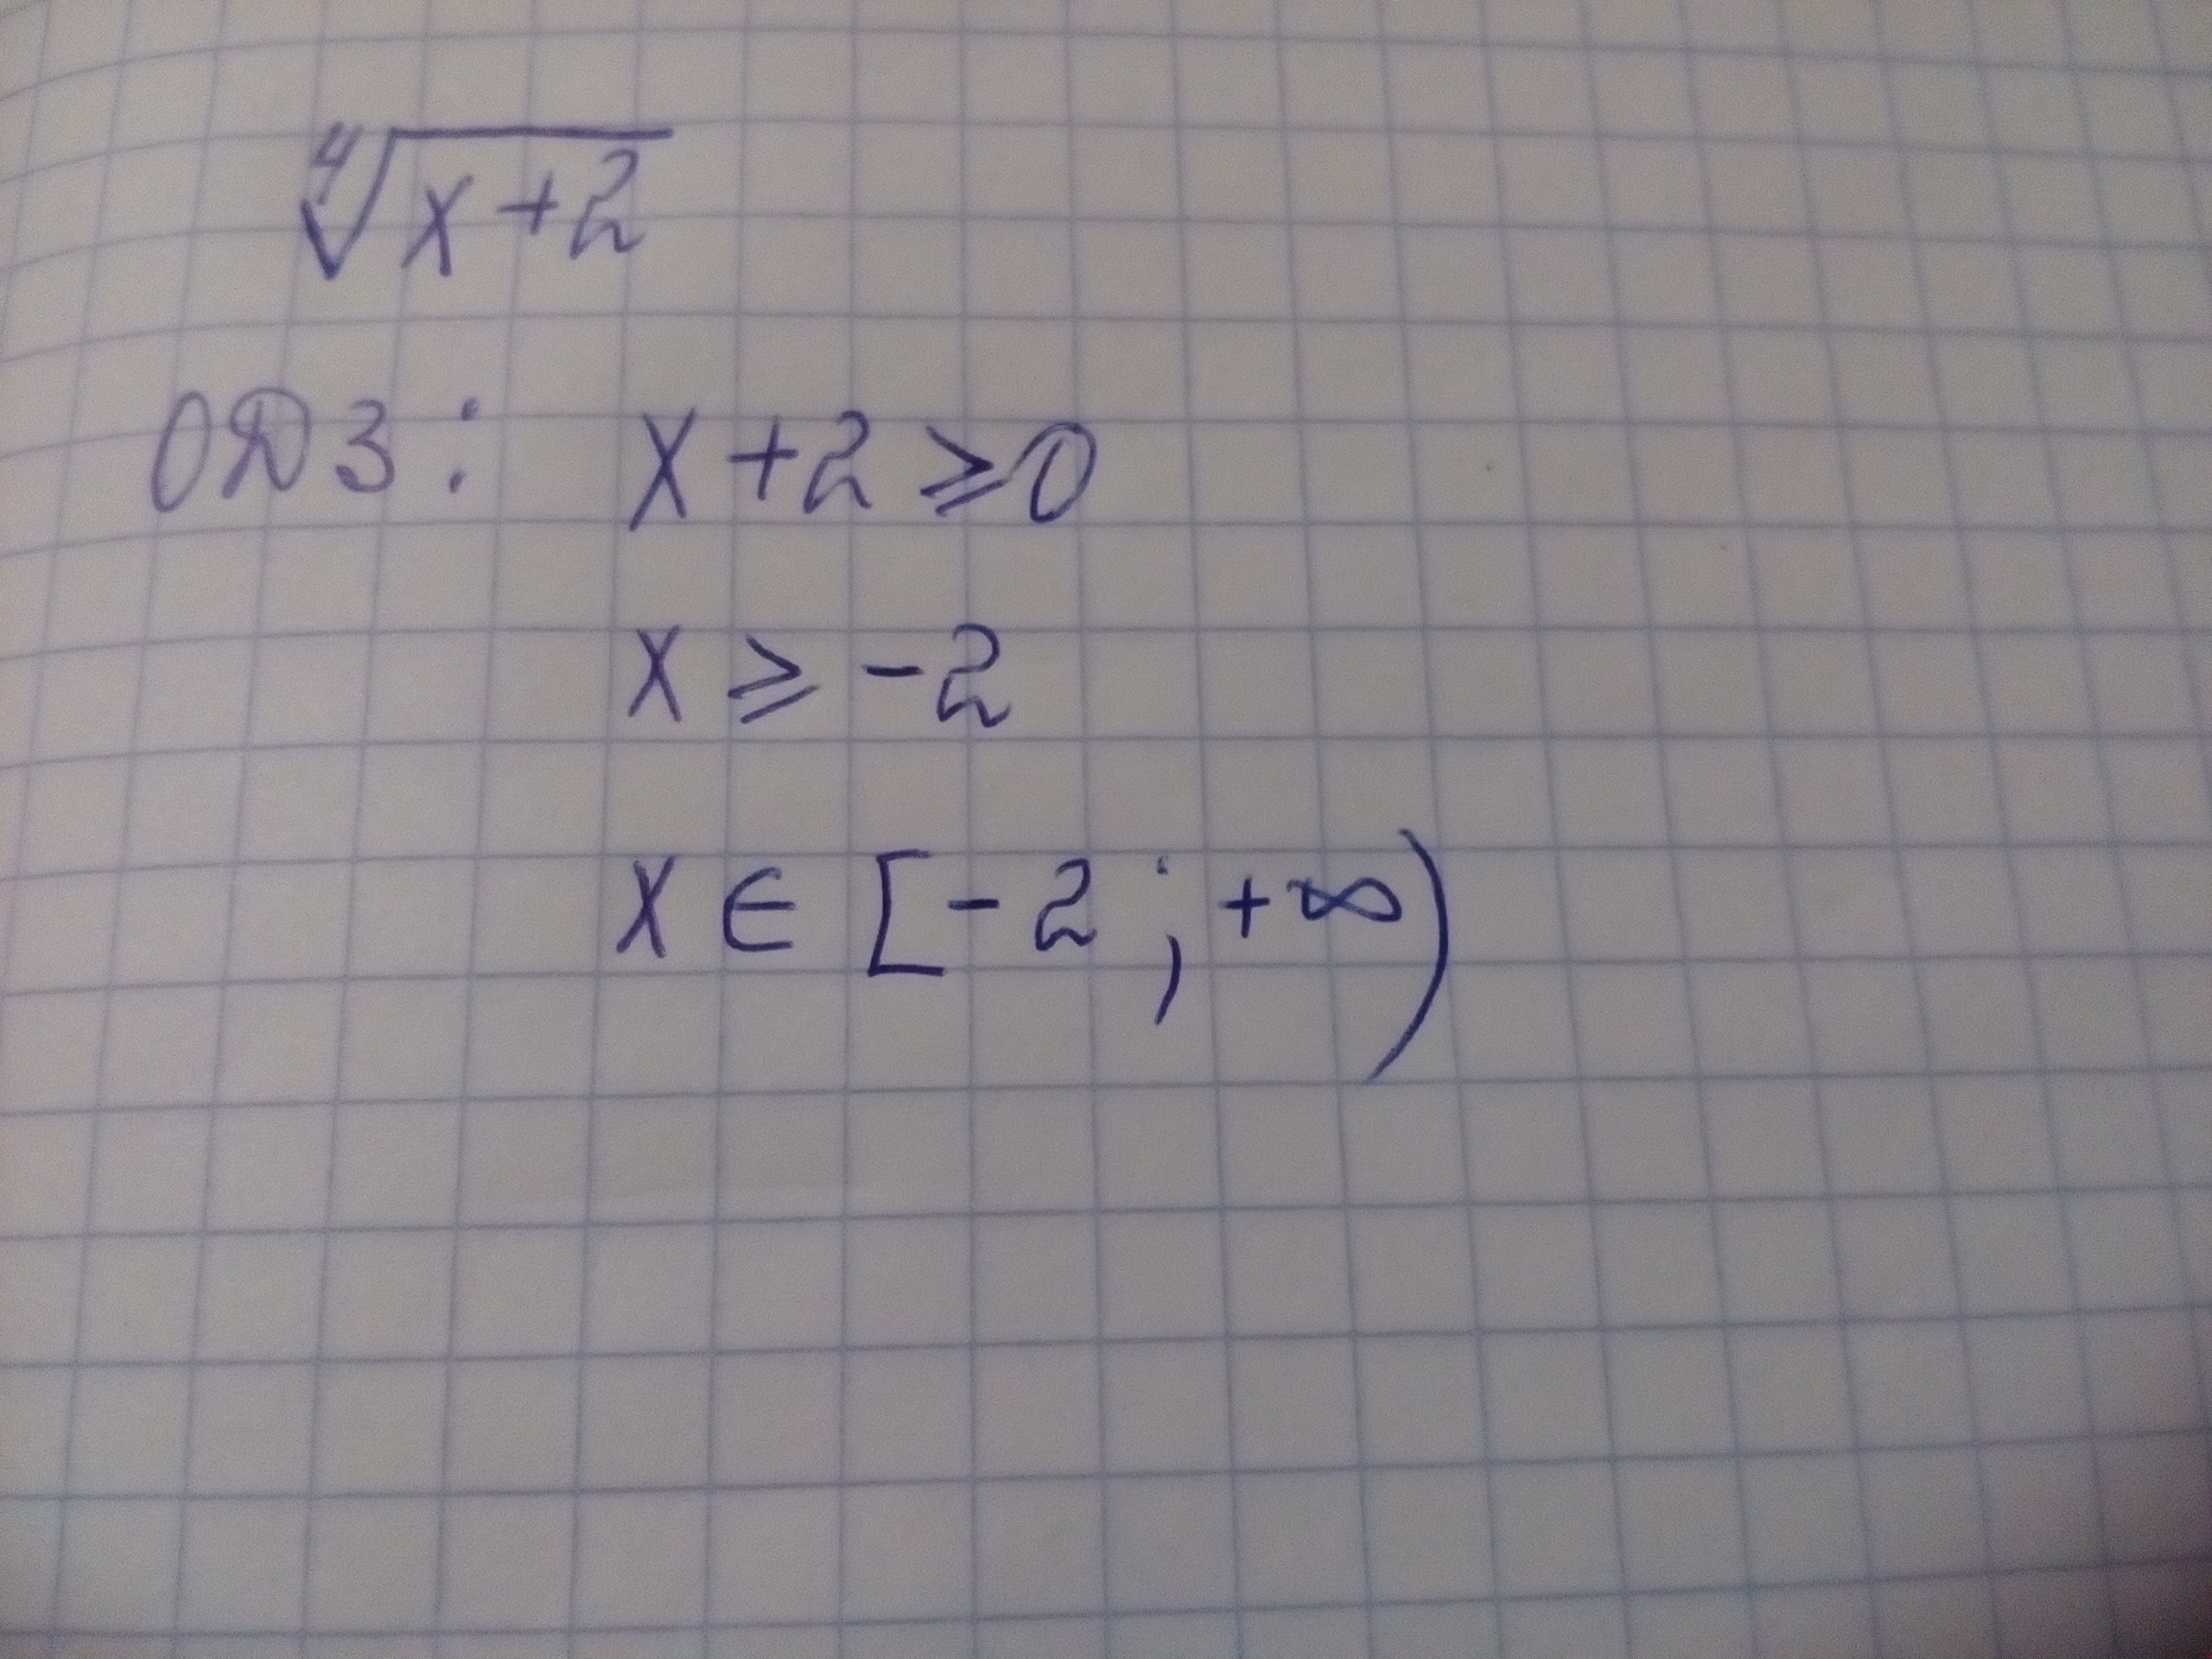 ⁴√x+2
ОДЗ: x+2⩾0
x ⩾ -2
x ∈ [-2 ; +∞)